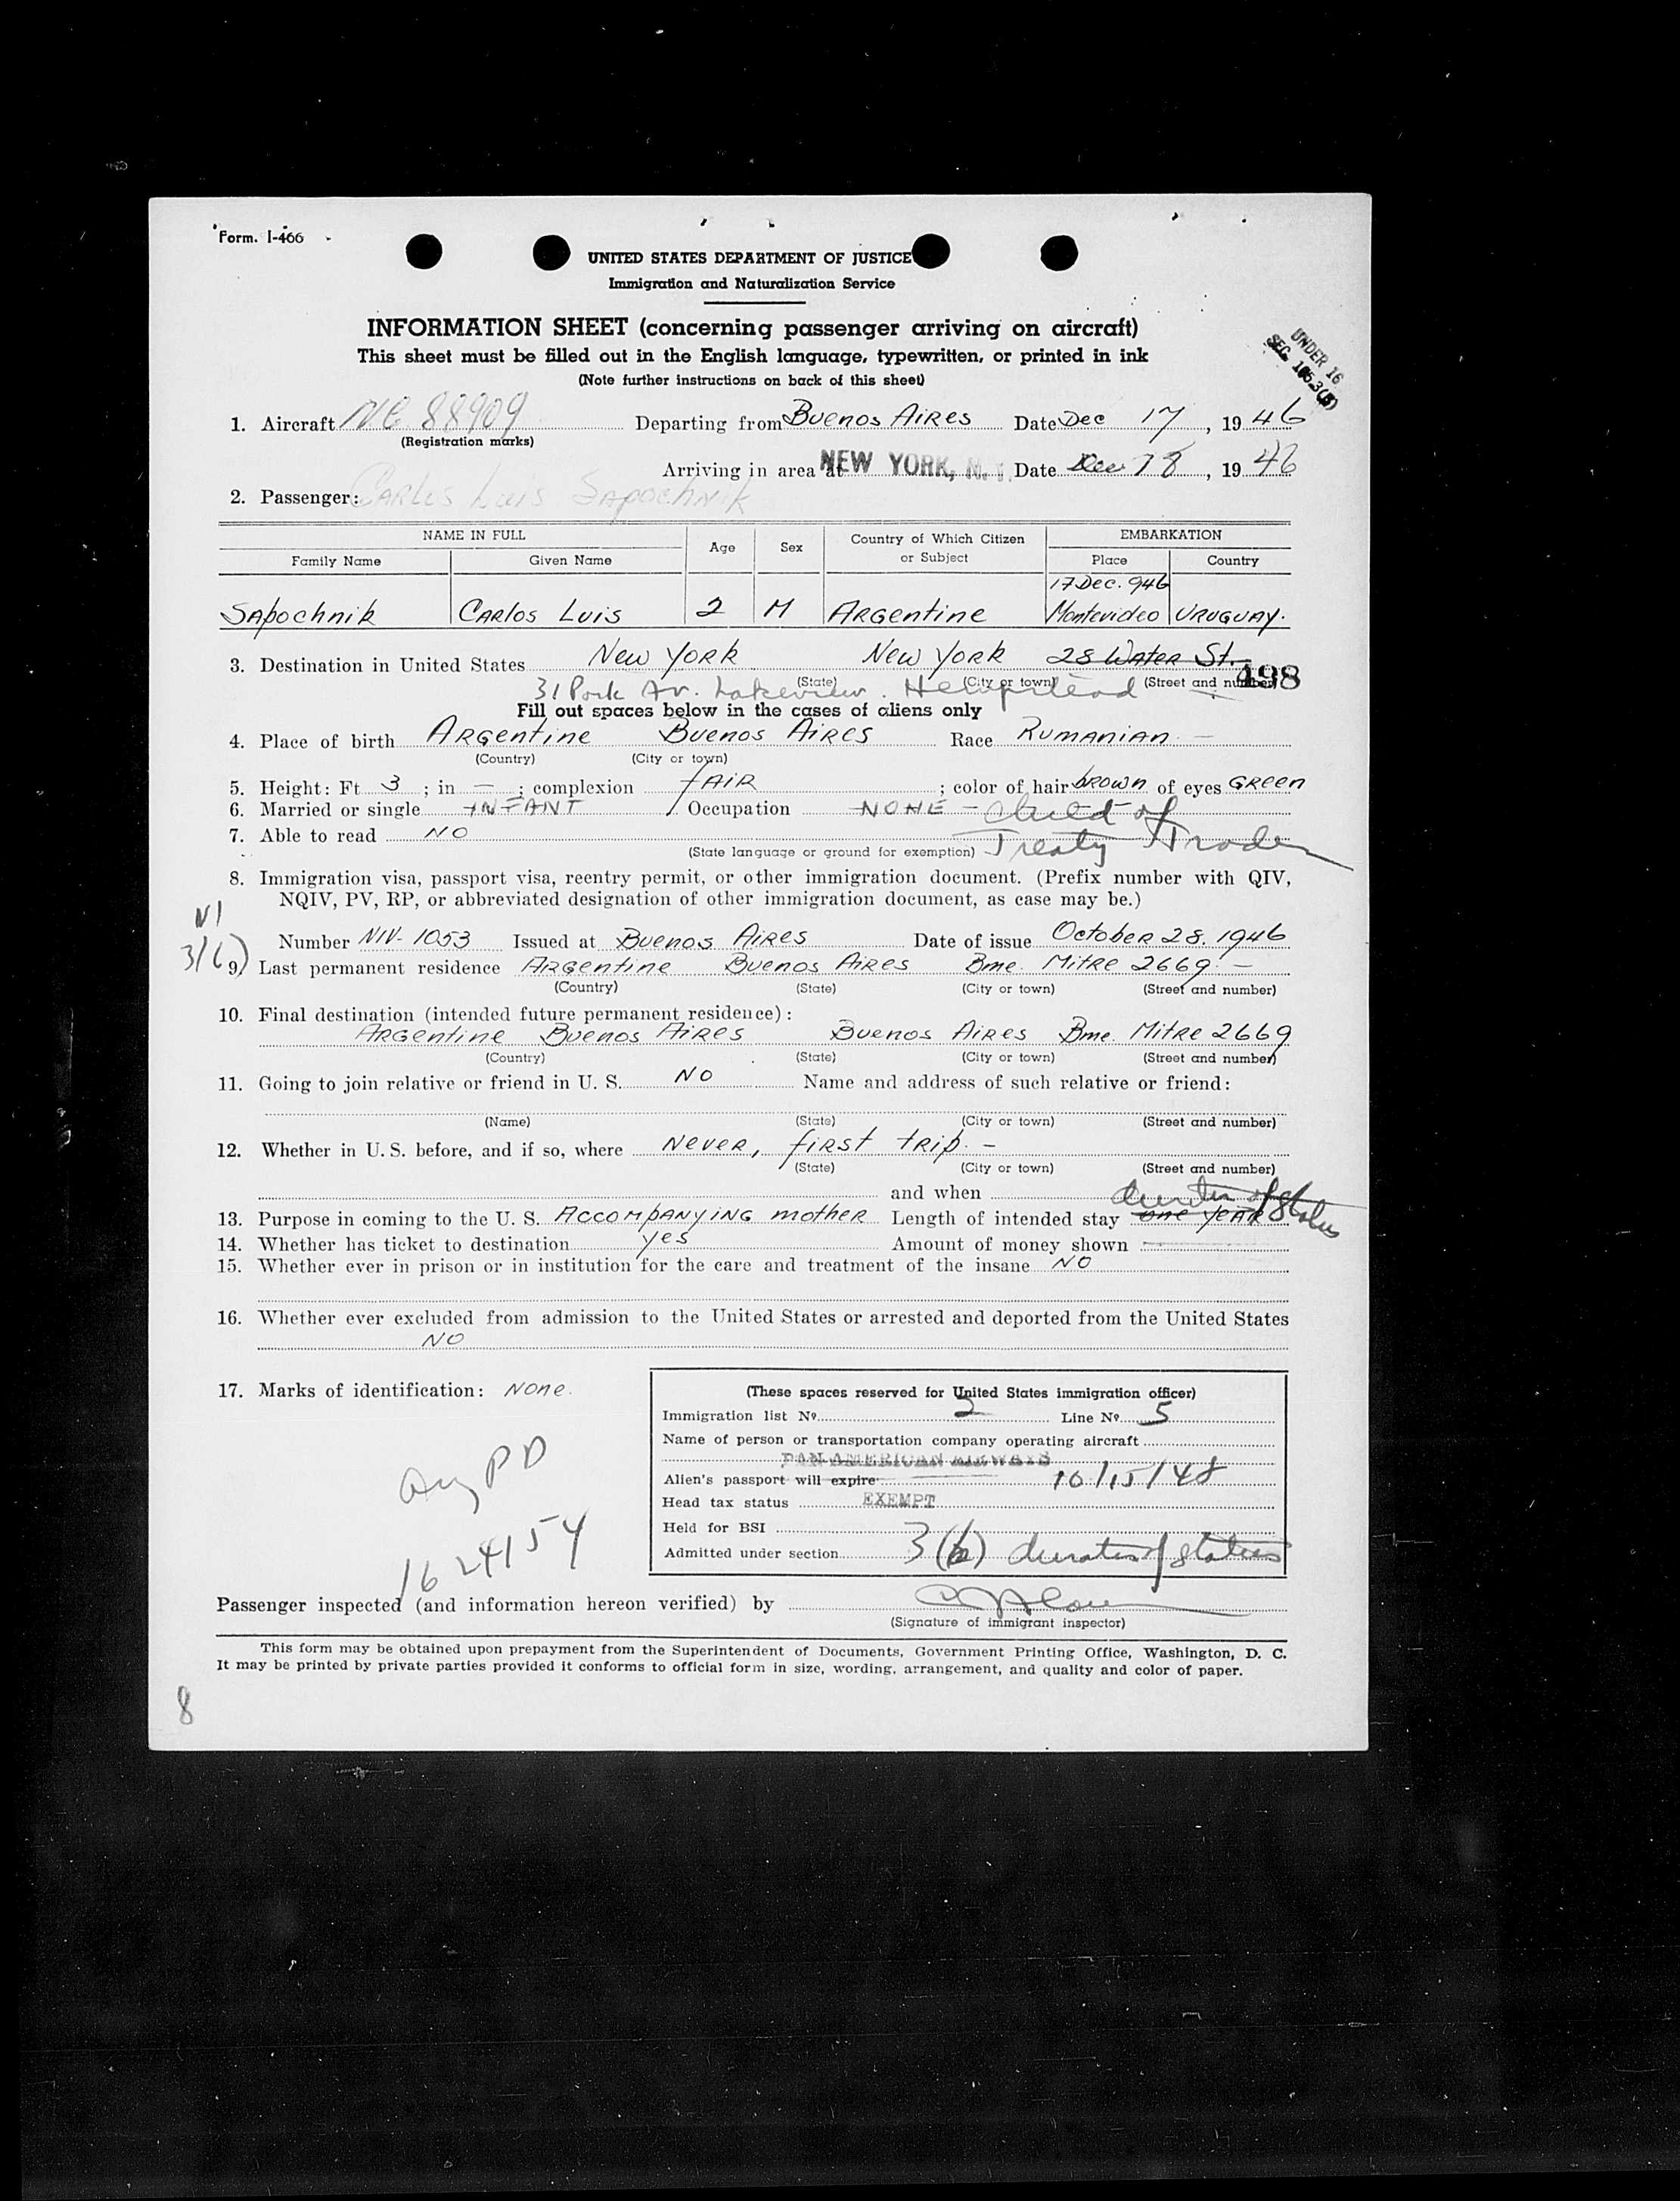 Form. I-466
UNITED STATES DEPARTMENT OF JUSTICE
Immigration and Naturalization Service
INFORMATION SHEET (concerning passenger arriving on aircraft)
This sheet must be filled out in the English language, typewritten, or printed in ink
(Note further instructions on back of this sheet)
UNDER 16
SEC. 165.3(B)
1. Aircraft NC 88909 Departing from Buenos Aires Date Dec 17, 1946
(Registration marks)
Arriving in area at NEW YORK, N. Y. Date Dec 18, 1946
2. Passenger: Carlos Luis Sapochnik
NAME IN FULL Age Sex Country of Which Citizen or Subject EMBARKATION
Family Name Given Name Place Country
17 Dec. 946
Sapochnik Carlos Luis 2 M Argentine Montevideo Uruguay.
3. Destination in United States New York New York 28 Water St.
(State) (City or town) (Street and number) 498
31 Park Av. Lakeview. Hempstead
Fill out spaces below in the cases of aliens only
4. Place of birth Argentine Buenos Aires Race Rumanian —
(Country) (City or town)
5. Height: Ft. 3; in — ; complexion fair; color of hair brown of eyes Green
6. Married or single INFANT Occupation NONE — Child of
7. Able to read NO Treaty Trader
(State language or ground for exemption)
8. Immigration visa, passport visa, reentry permit, or other immigration document. (Prefix number with QIV,
NQIV, PV, RP, or abbreviated designation of other immigration document, as case may be.)
VI
3/6)
Number NIV- 1053 Issued at Buenos Aires Date of issue October 28. 1946
9. Last permanent residence Argentine Buenos Aires Bme. Mitre 2669. —
(Country) (State) (City or town) (Street and number)
10. Final destination (intended future permanent residence):
Argentine Buenos Aires Buenos Aires Bme. Mitre 2669
(Country) (State) (City or town) (Street and number)
11. Going to join relative or friend in U. S. NO Name and address of such relative or friend:
(Name) (State) (City or town) (Street and number)
12. Whether in U. S. before, and if so, where Never, first trip. —
(State) (City or town) (Street and number)
and when
duration of status
13. Purpose in coming to the U. S. Accompanying mother Length of intended stay one year
14. Whether has ticket to destination yes Amount of money shown
15. Whether ever in prison or in institution for the care and treatment of the insane NO
16. Whether ever excluded from admission to the United States or arrested and deported from the United States
NO
17. Marks of identification: None.
(These spaces reserved for United States immigration officer)
Immigration list No. 2 Line No. 5
Name of person or transportation company operating aircraft
PAN AMERICAN AIRWAYS
Alien's passport will expire 10/15/48
Head tax status EXEMPT
Held for BSI
Admitted under section 3(6) duration of status
Arg PP
1624154
Passenger inspected (and information hereon verified) by
(Signature of immigrant inspector)
This form may be obtained upon prepayment from the Superintendent of Documents, Government Printing Office, Washington, D. C.
It may be printed by private parties provided it conforms to official form in size, wording, arrangement, and quality and color of paper.
8